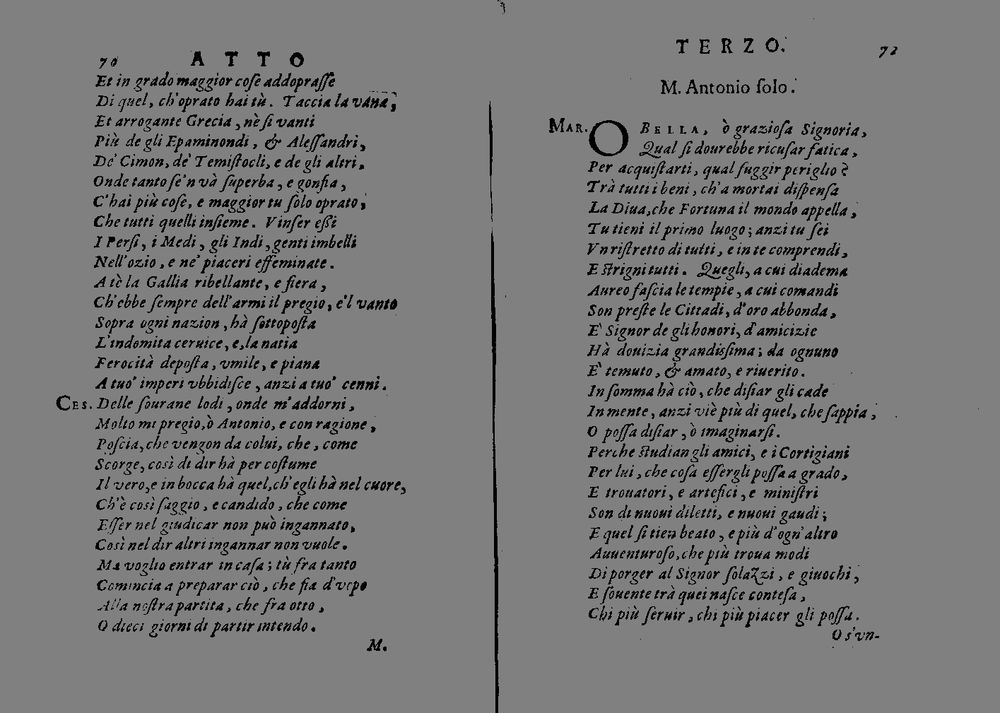 70 ATTO
Et in grado maggior coſe addopraſſe
Di quel, ch'oprato hai tù. Taccia la vana,
Et arrogante Grecia, nè ſi vanti
Più de gli Epaminondi, & Aleſſandri,
De' Cimon, de' Temiſtocli, e de gli altri,
Onde tanto ſe'n và ſuperba, e gonfia,
C'hai più coſe, e maggior tu ſolo oprato,
Che tutti quelli inſieme. Vinſer eſſi
I Perſi, i Medi, gli Indi, genti imbelli
Nell'ozio, e ne' piaceri effeminate.
A tè la Gallia ribellante, e fiera,
Ch'ebbe ſempre dell'armi il pregio, e'l vanto
Sopra ogni nazion, hà ſottopoſta
L'indomita ceruice, e, la natia
Ferocità depoſta, vmile, e piana
A tuo' imperi vbbidiſce, anzi a tuo' cenni.
CES. Delle ſourane lodi, onde m'addorni,
Molto mi pregio, ò Antonio, e con ragione,
Poſcia, che vengon da colui, che, come
Scorge, così di dir hà per coſtume
Il vero, e in bocca hà quel, ch'egli hà nel cuore,
Ch'è così ſaggio, e candido, che come
Eſſer nel giudicar non può ingannato,
Così nel dir altri ingannar non vuole.
Ma voglio entrar in caſa; tù fra tanto
Comincia a preparar ciò, che fia d'vopo
Alla noſtra partita, che fra otto,
O dieci giorni di partir intendo.
M.
TERZO. 71
M. Antonio ſolo.
MAR. O BELLA, ò grazioſa Signoria,
Qual ſi dourebbe ricuſar fatica,
Per acquiſtarti, qual fuggir periglio?
Trà tutti i beni, ch'a mortai diſpenſa
La Diua, che Fortuna il mondo appella,
Tu tieni il primo luogo; anzi tu ſei
Vn riſtretto di tutti, e in te comprendi,
E ſtrigni tutti. Quegli, a cui diadema
Aureo faſcia le tempie, a cui comandi
Son preſte le Cittadi, d'oro abbonda,
E' Signor de gli honori, d'amicizie
Hà douizia grandiſſima; da ognuno
E' temuto, & amato, e riuerito.
In ſomma hà ciò, che diſiar gli cade
In mente, anzi viè più di quel, che ſappia,
O poſſa diſiar, ò imaginarſi.
Perche ſtudian gli amici, e i Cortigiani
Per lui, che coſa eſſergli poſſa a grado,
E trouatori, e artefici, e miniſtri
Son di nuoui diletti, e nuoui gaudi;
E quel ſi tien beato, e più d'ogn'altro
Auuenturoſo, che più troua modi
Di porger al Signor ſolaZzi, e giuochi,
E ſouente trà quei naſce conteſa,
Chi più ſeruir, chi più piacer gli poſſa.
O s'vn-